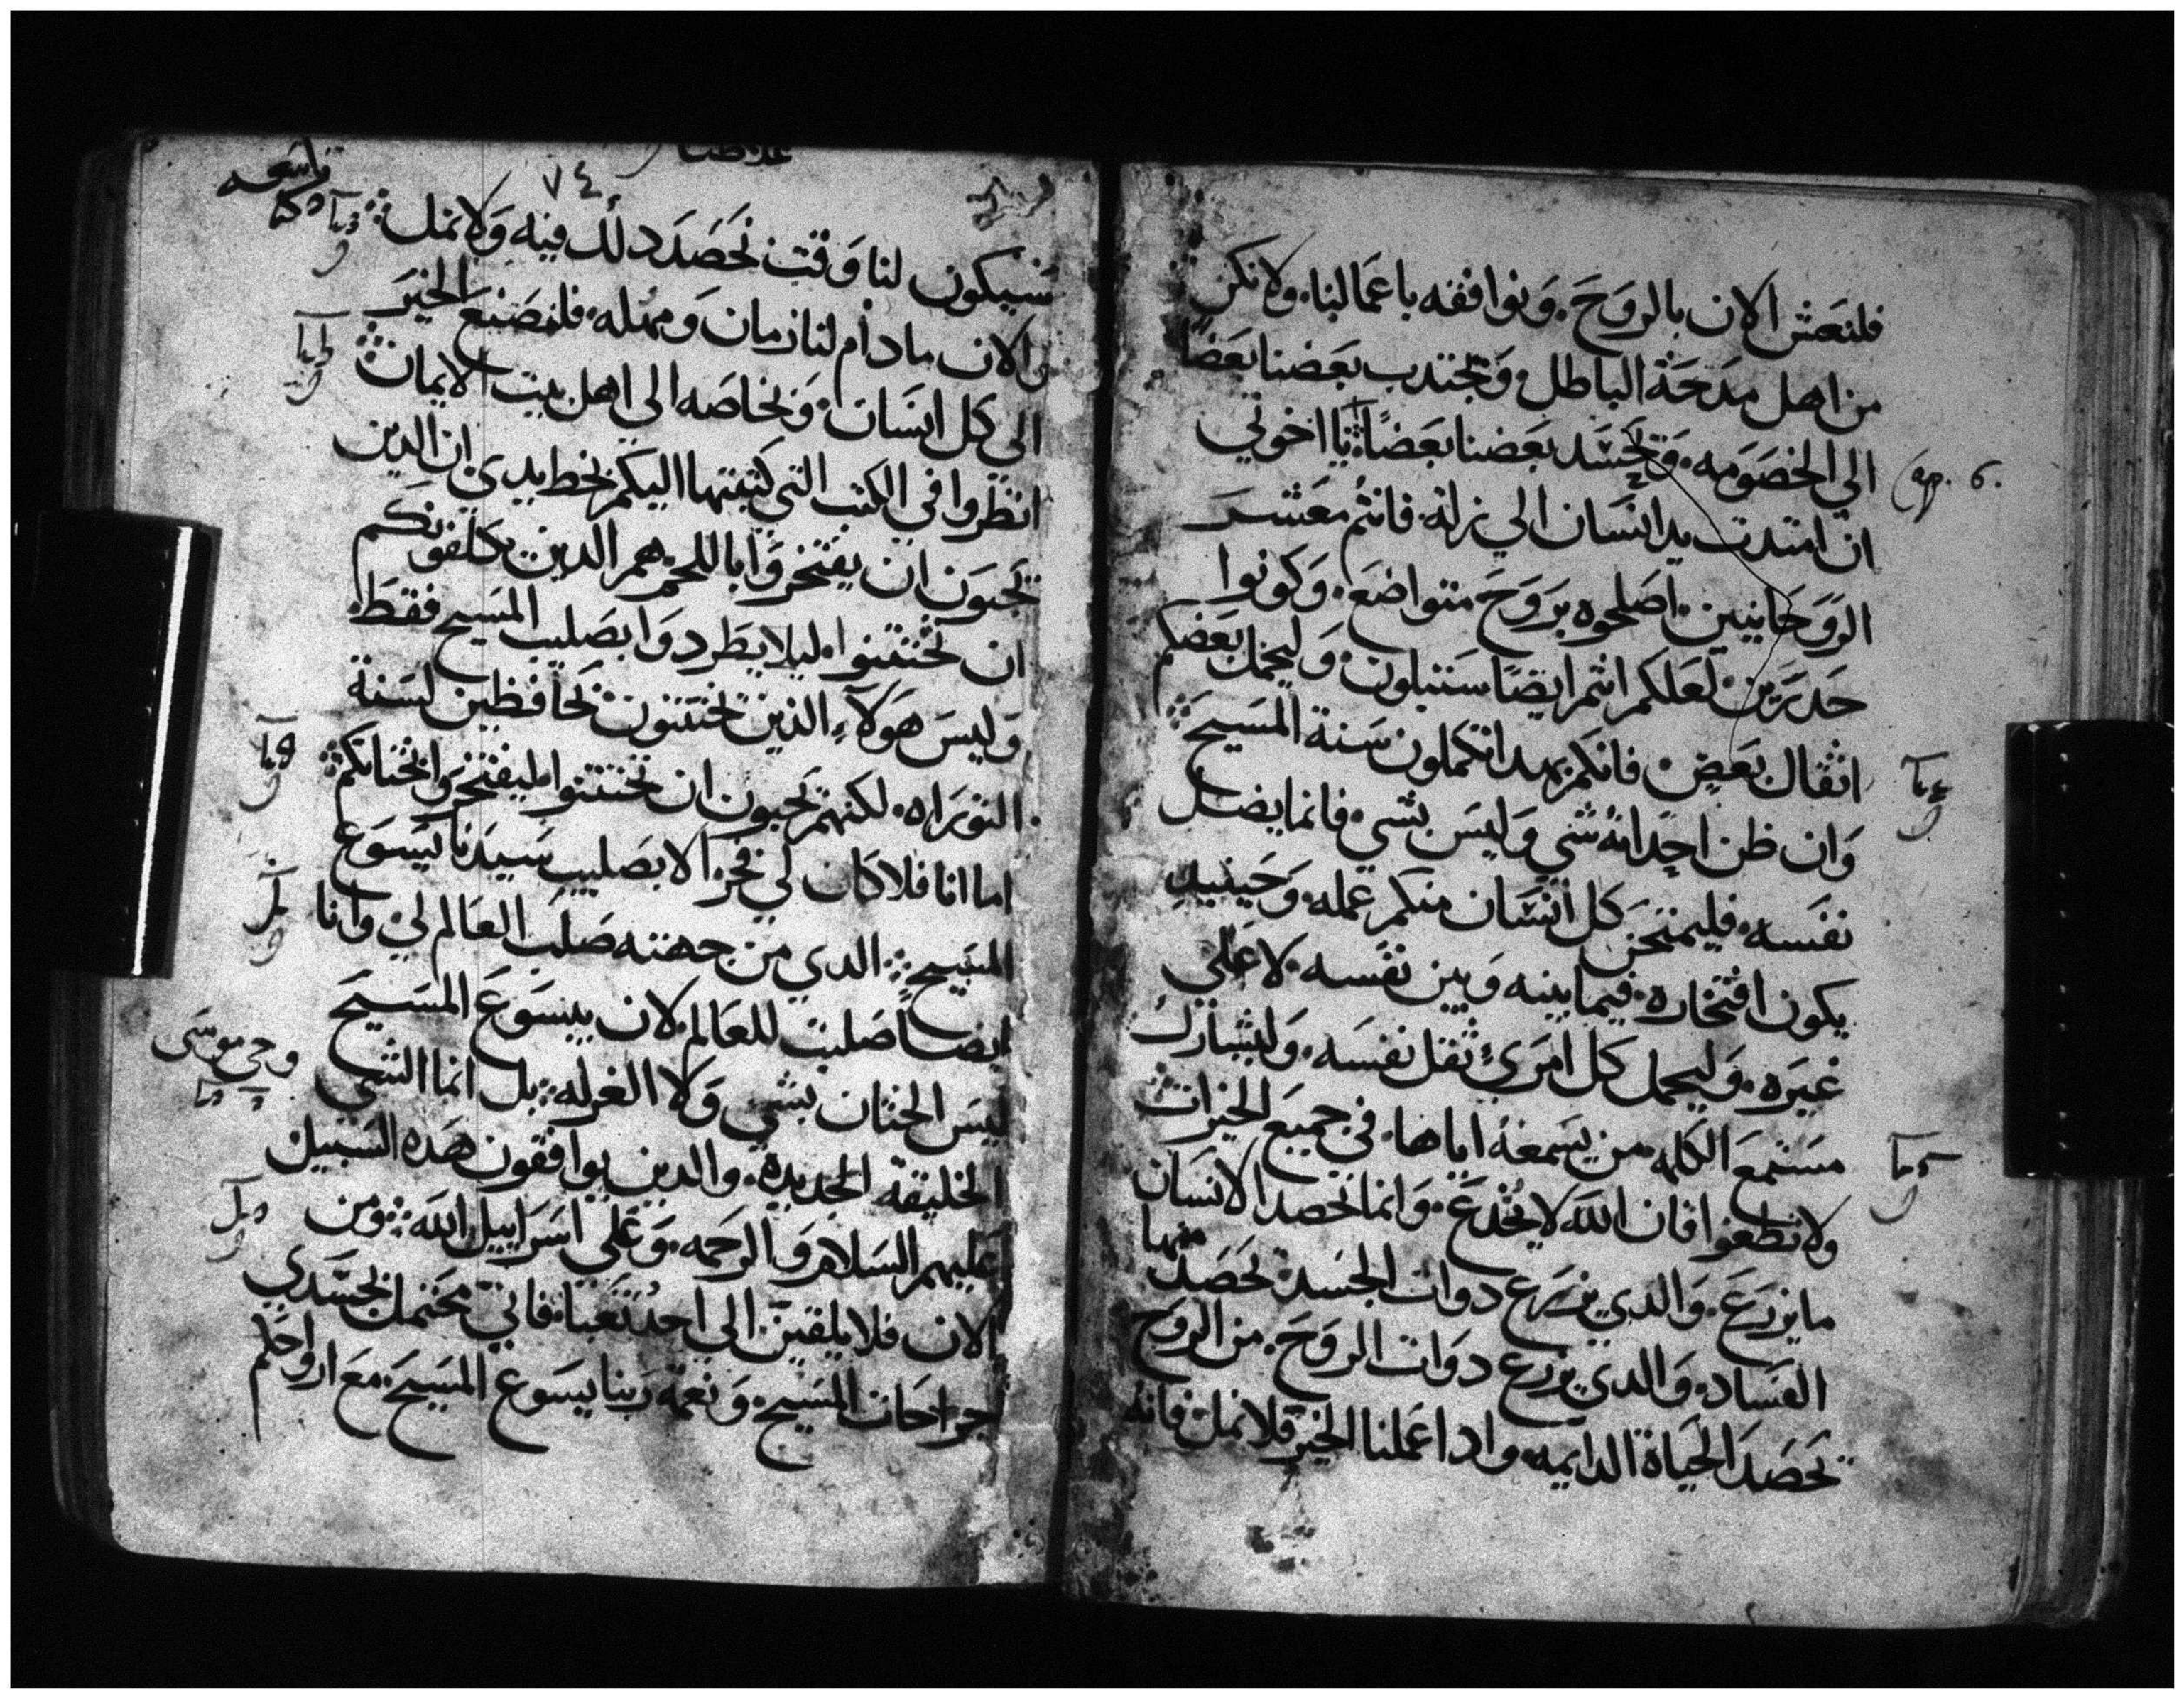 فلنعش الان بالروح. ونوافقه باعمالنا. ولا نكن
من اهل مدحة الباطل. وتجتدب بعضنا بعضا
الي الخصومه. وتحسد بعضنا بعضا. يا اخوتي
Cap. 6.
ان امتدت يد انسان الي زله. فانتم معشر
الروحانيين. اصلحوه بروح متواضع. وكونوا
حدرين لعلكم انتم ايضا ستبتلون. وليحمل بعضكم
اثقال بعض. فانكم بهدا تكملون سنة المسيح
وان ظن احد انه شي وليس بشي. فانما يضل
نفسه. فليمتحن كل انسان منكم عمله. وحينيد
يكون افتخاره. فيما بينه وبين نفسه. لا على
غيره. وليحمل كل امرئ ثقل نفسه. وليشارك
مستمع الكلمه. من يسمعه اياها. في جميع الخيرات
ولا تطغوا فان الله لا يخدع. وانما تحصد الانسان
ما يزرع. والدي يزرع دوات الجسد تحصد منها
الفساد. والدي يزرع دوات الروح. من الروح
تحصد الحياة الدايمه. وادا عملنا الخير فلا نمل. فانه
٧٤
سيكون لنا وقت نحصد دلك فيه ولا نمل
والان ما دام لنا زمان ومهله. فلنصنع الخير
الى كل انسان. وبخاصه الى اهل بيت الايمان
انظروا في الكتب التي كتبتها اليكم بخط يدي. ان الدين
تحبون ان يفتخروا باللحم. هم الدين يكلفونكم
ان تختتنوا. ليلا يطردوا بصليب المسيح فقط.
وليس هولاء الذين تختتنون بحافظين لسنة
التوراه. لكنهم تحبون ان تختتنوا ليفتخروا بختانكم
اما انا فلا كان لي فخر الا بصليب سيدنا يسوع
المسيح. الدي من جهته صلب العالم لي. وانا
ايضا صلبت للعالم. لان بيسوع المسيح
ليس الختان بشي ولا الغرله. بل انما الشي
وحي موسى
الخليقة الجديدة. والدين يوافقون هده السبيل
عليهم السلام والرحمه. وعلى اسراييل الله. ومن
الان فلا يلقين الى احد تعبا. فاني محتمل بجسدي
جراحات المسيح. ونعمة ربنا يسوع المسيح. مع ارواحكم